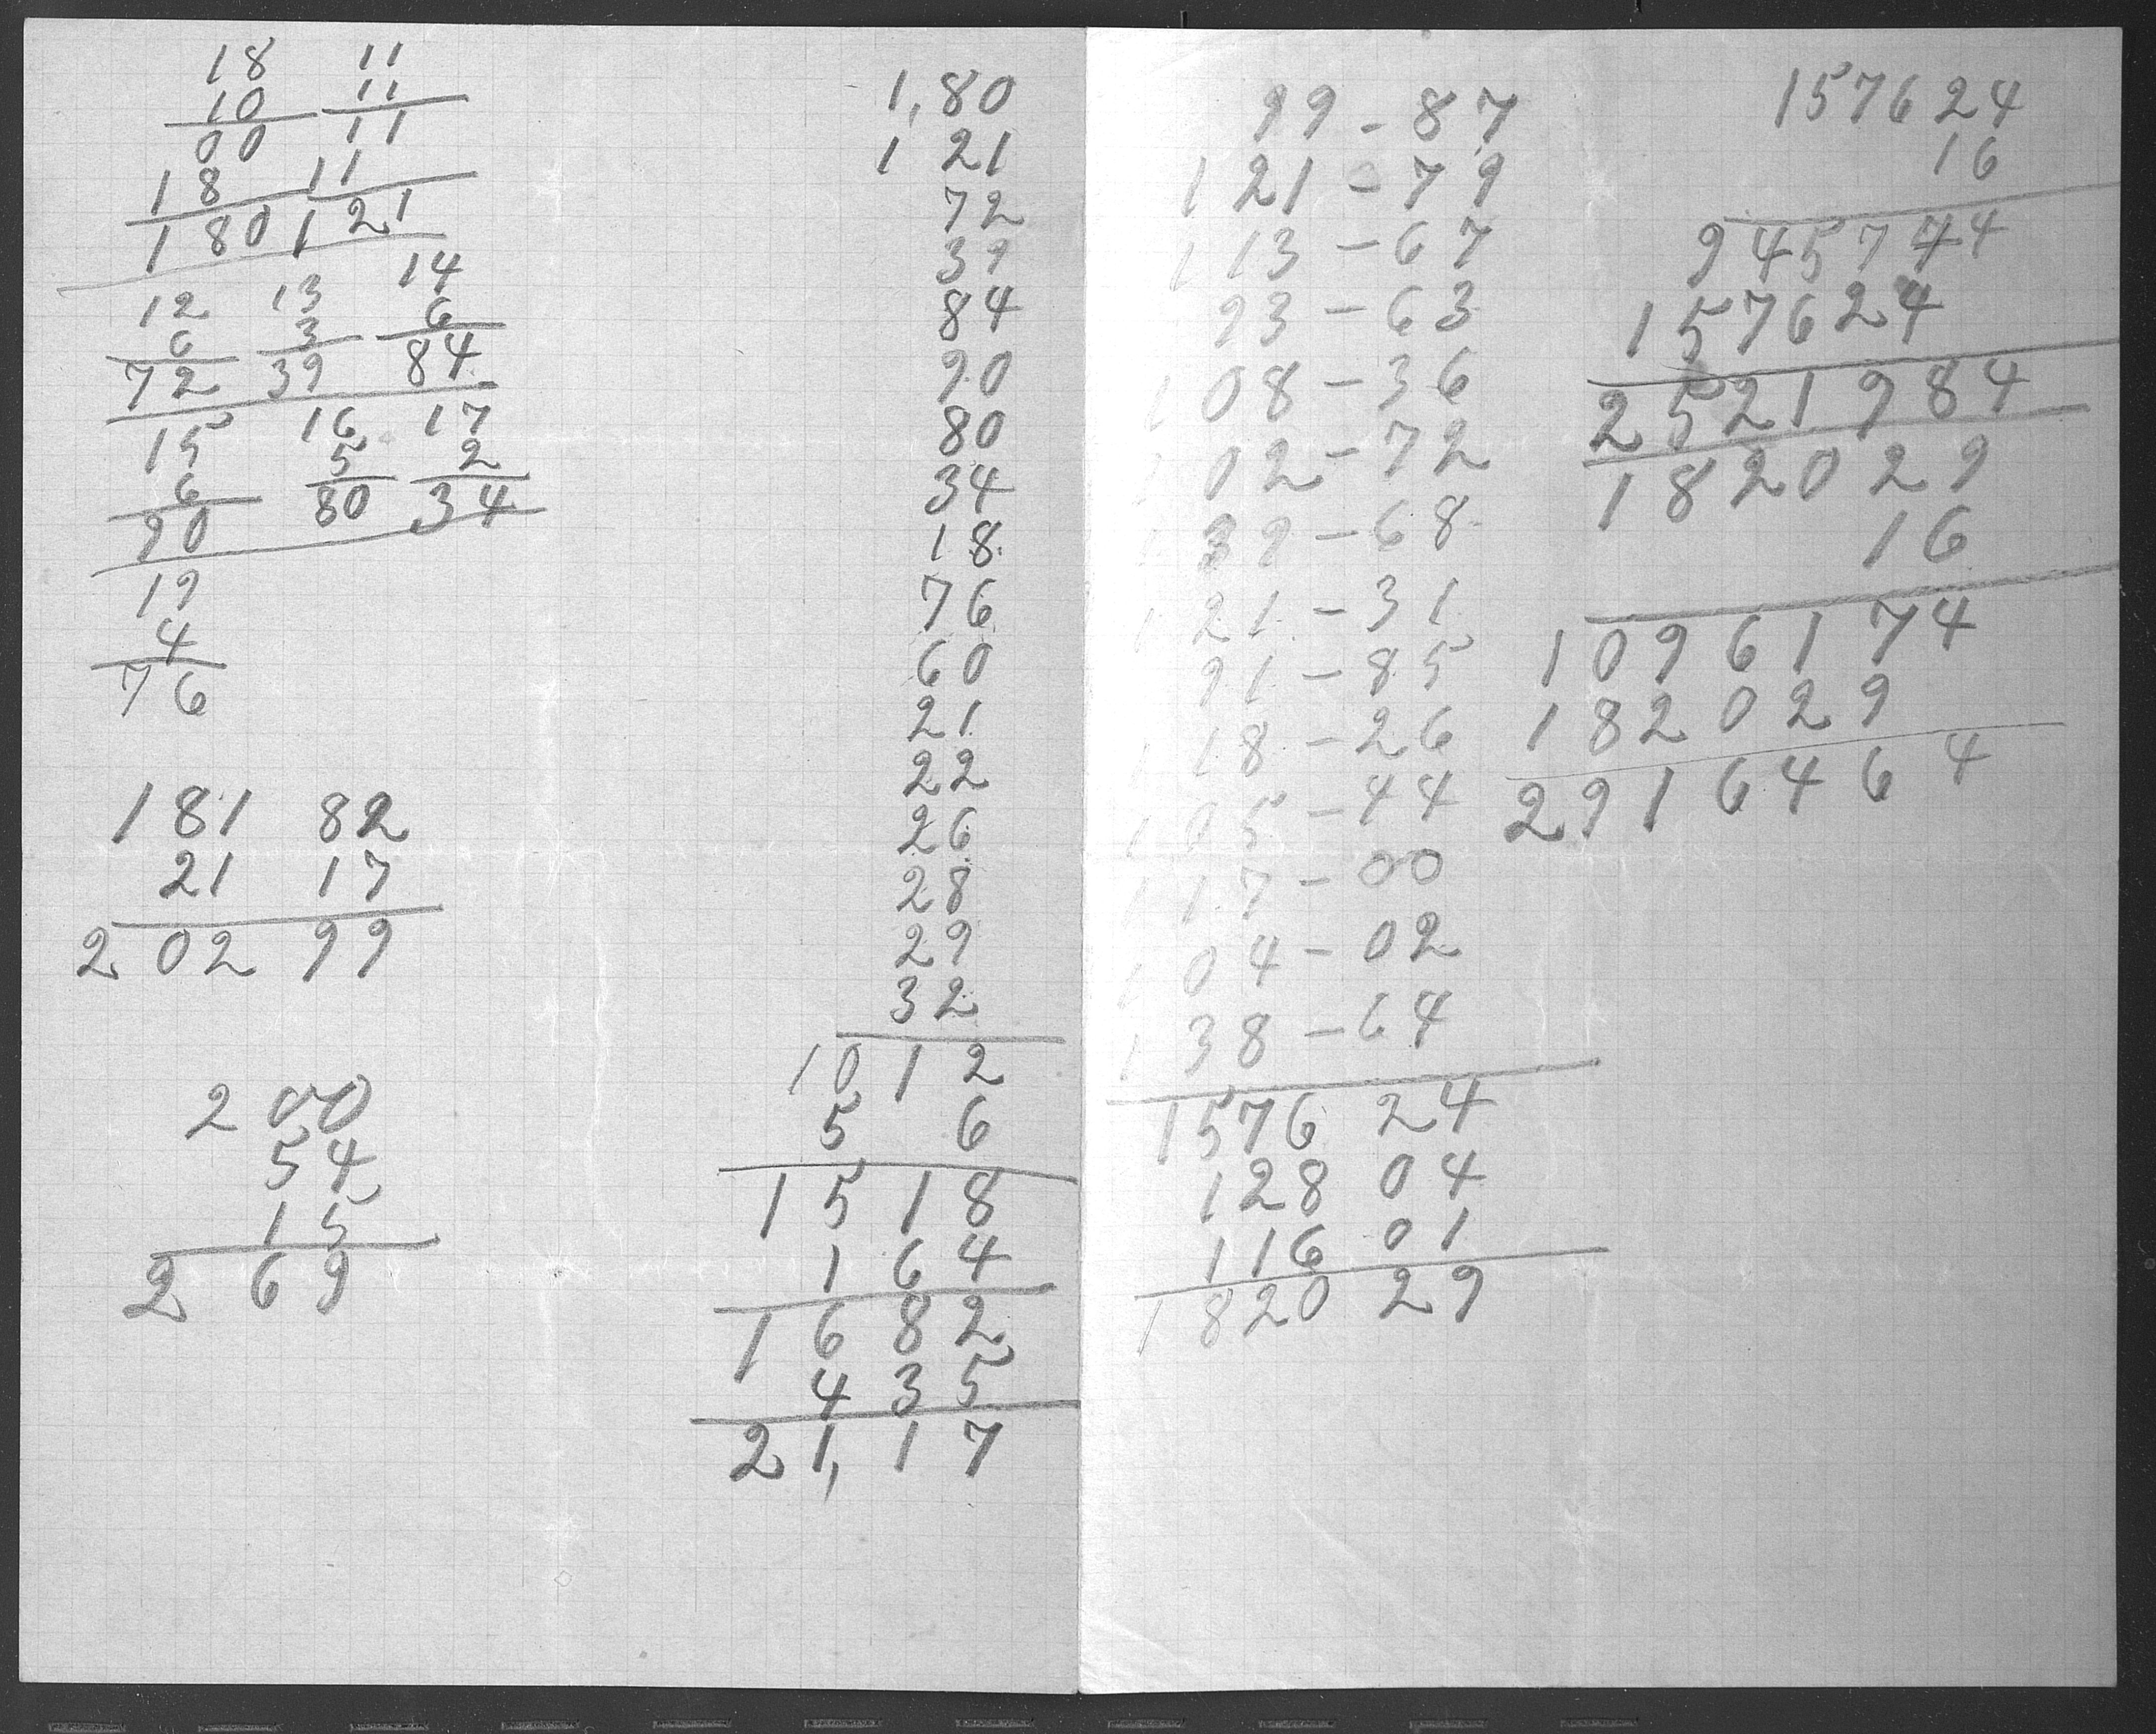 18 11
10 11
00 11
18 11
180 121
12 13 14
6 3 6
72 39 84
15 16 17
6 5 2
90 80 34
19
4
76
181 82
21 17
202 99
200
54
15
269
1,80
1 21
72
39
84
90
80
34
18
76
60
21
22
26
28
29
32
1012
5 6
1518
164
1682
435
21,17
99-87
121-79
113-67
93-63
108-36
102-72
139-68
121-31
91-85
118-26
105-44
117-00
104-02
138-64
1576 24
128 04
116 01
1820 29
157624
16
945744
157624
2521984
182029
16
1096174
182029
2916464